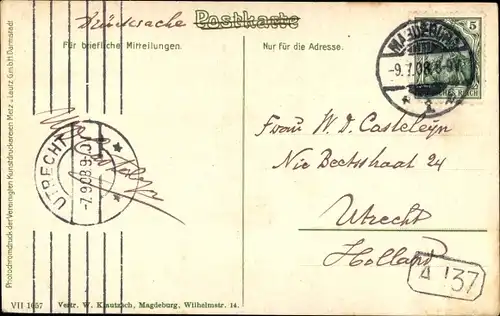 Drucksache Postkarte
Für briefliche Mitteilungen.
Nur für die Adresse.
MAGDEBURG
-9.7.08.8-9V.
* 1 *
5
REICH
Frau W. D. Casteleyn
Nic Beetsstraat 24
Utrecht
Holland
A 137
UTRECHT
-7.9.08.9-
Photochromdruck der Vereinigten Kunstdruckereien Metz & Lautz G.m.b.H. Darmstadt
VII 1657 Vertr. W. Klautzsch, Magdeburg, Wilhelmstr. 14.